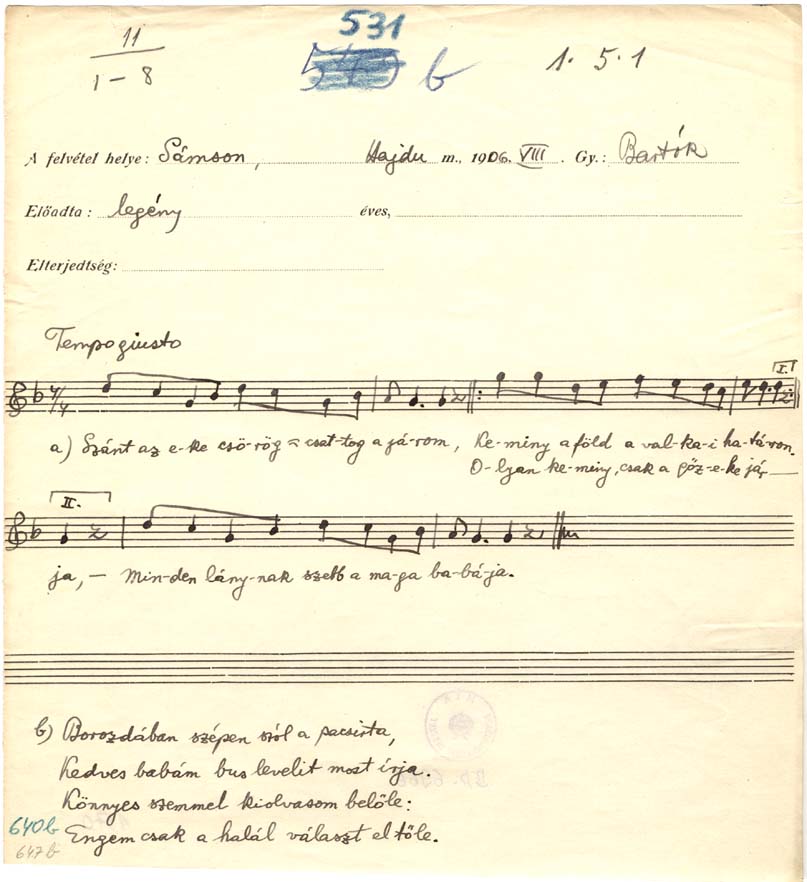 11
1 – 8
531
b
1. 5. 1
A felvétel helye: Sámson, Hajdu m., 1906. VIII. Gy.: Bartók
Előadta: legény éves,
Elterjedtség:
Tempo giusto
4/4
I.
a) Szánt az e-ke csö-rög – csat-tog a já-rom, Ke-mény a föld a val-ka-i ha-tá-ron.
O-lyan ke-mény, csak a gőz-e-ke jár-
II.
ja, – Min-den lány-nak szebb a ma-ga ba-bá-ja.
b) Borozdában szépen szól a pacsirta,
Kedves babám bus levelit most irja.
Könnyes szemmel kiolvasom belőle:
640b Engem csak a halál választ el tőle.
647b